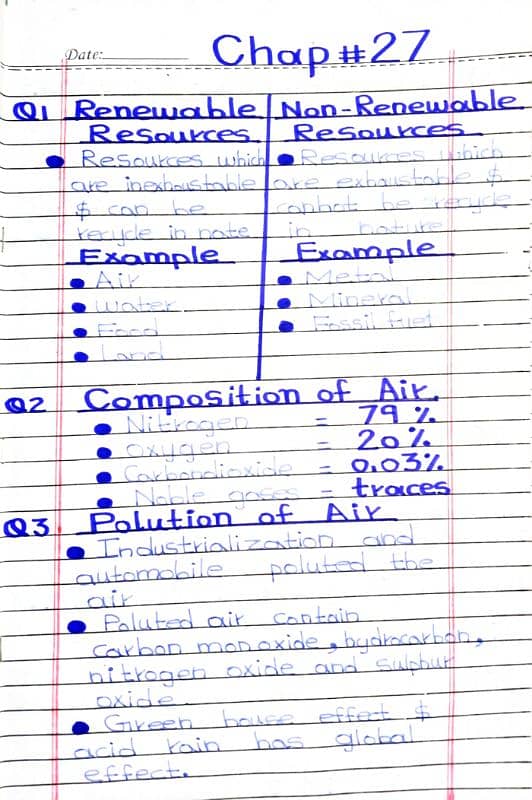 Date:
Chap #27
Q1 Renewable Resources
• Resources which
are inexhaustable
$ can be
recycle in nate
Example
• Air
• Water
• Food
• Land
Non-Renewable Resources
• Resources which
are exhaustable $
cannot be recycle
in nature
Example
• Metal
• Mineral
• Fossil fuel
Q2 Composition of Air.
• Nitrogen = 79%
• Oxygen = 20%
• Carbondioxide = 0.03%
• Noble gases = traces
Q3 Polution of Air
• Industrialization and
automobile poluted the
air
• Poluted air contain
carbon monoxide, hydrocarbon,
nitrogen oxide and sulphur
oxide.
• Green house effect $
acid rain has global
effect.